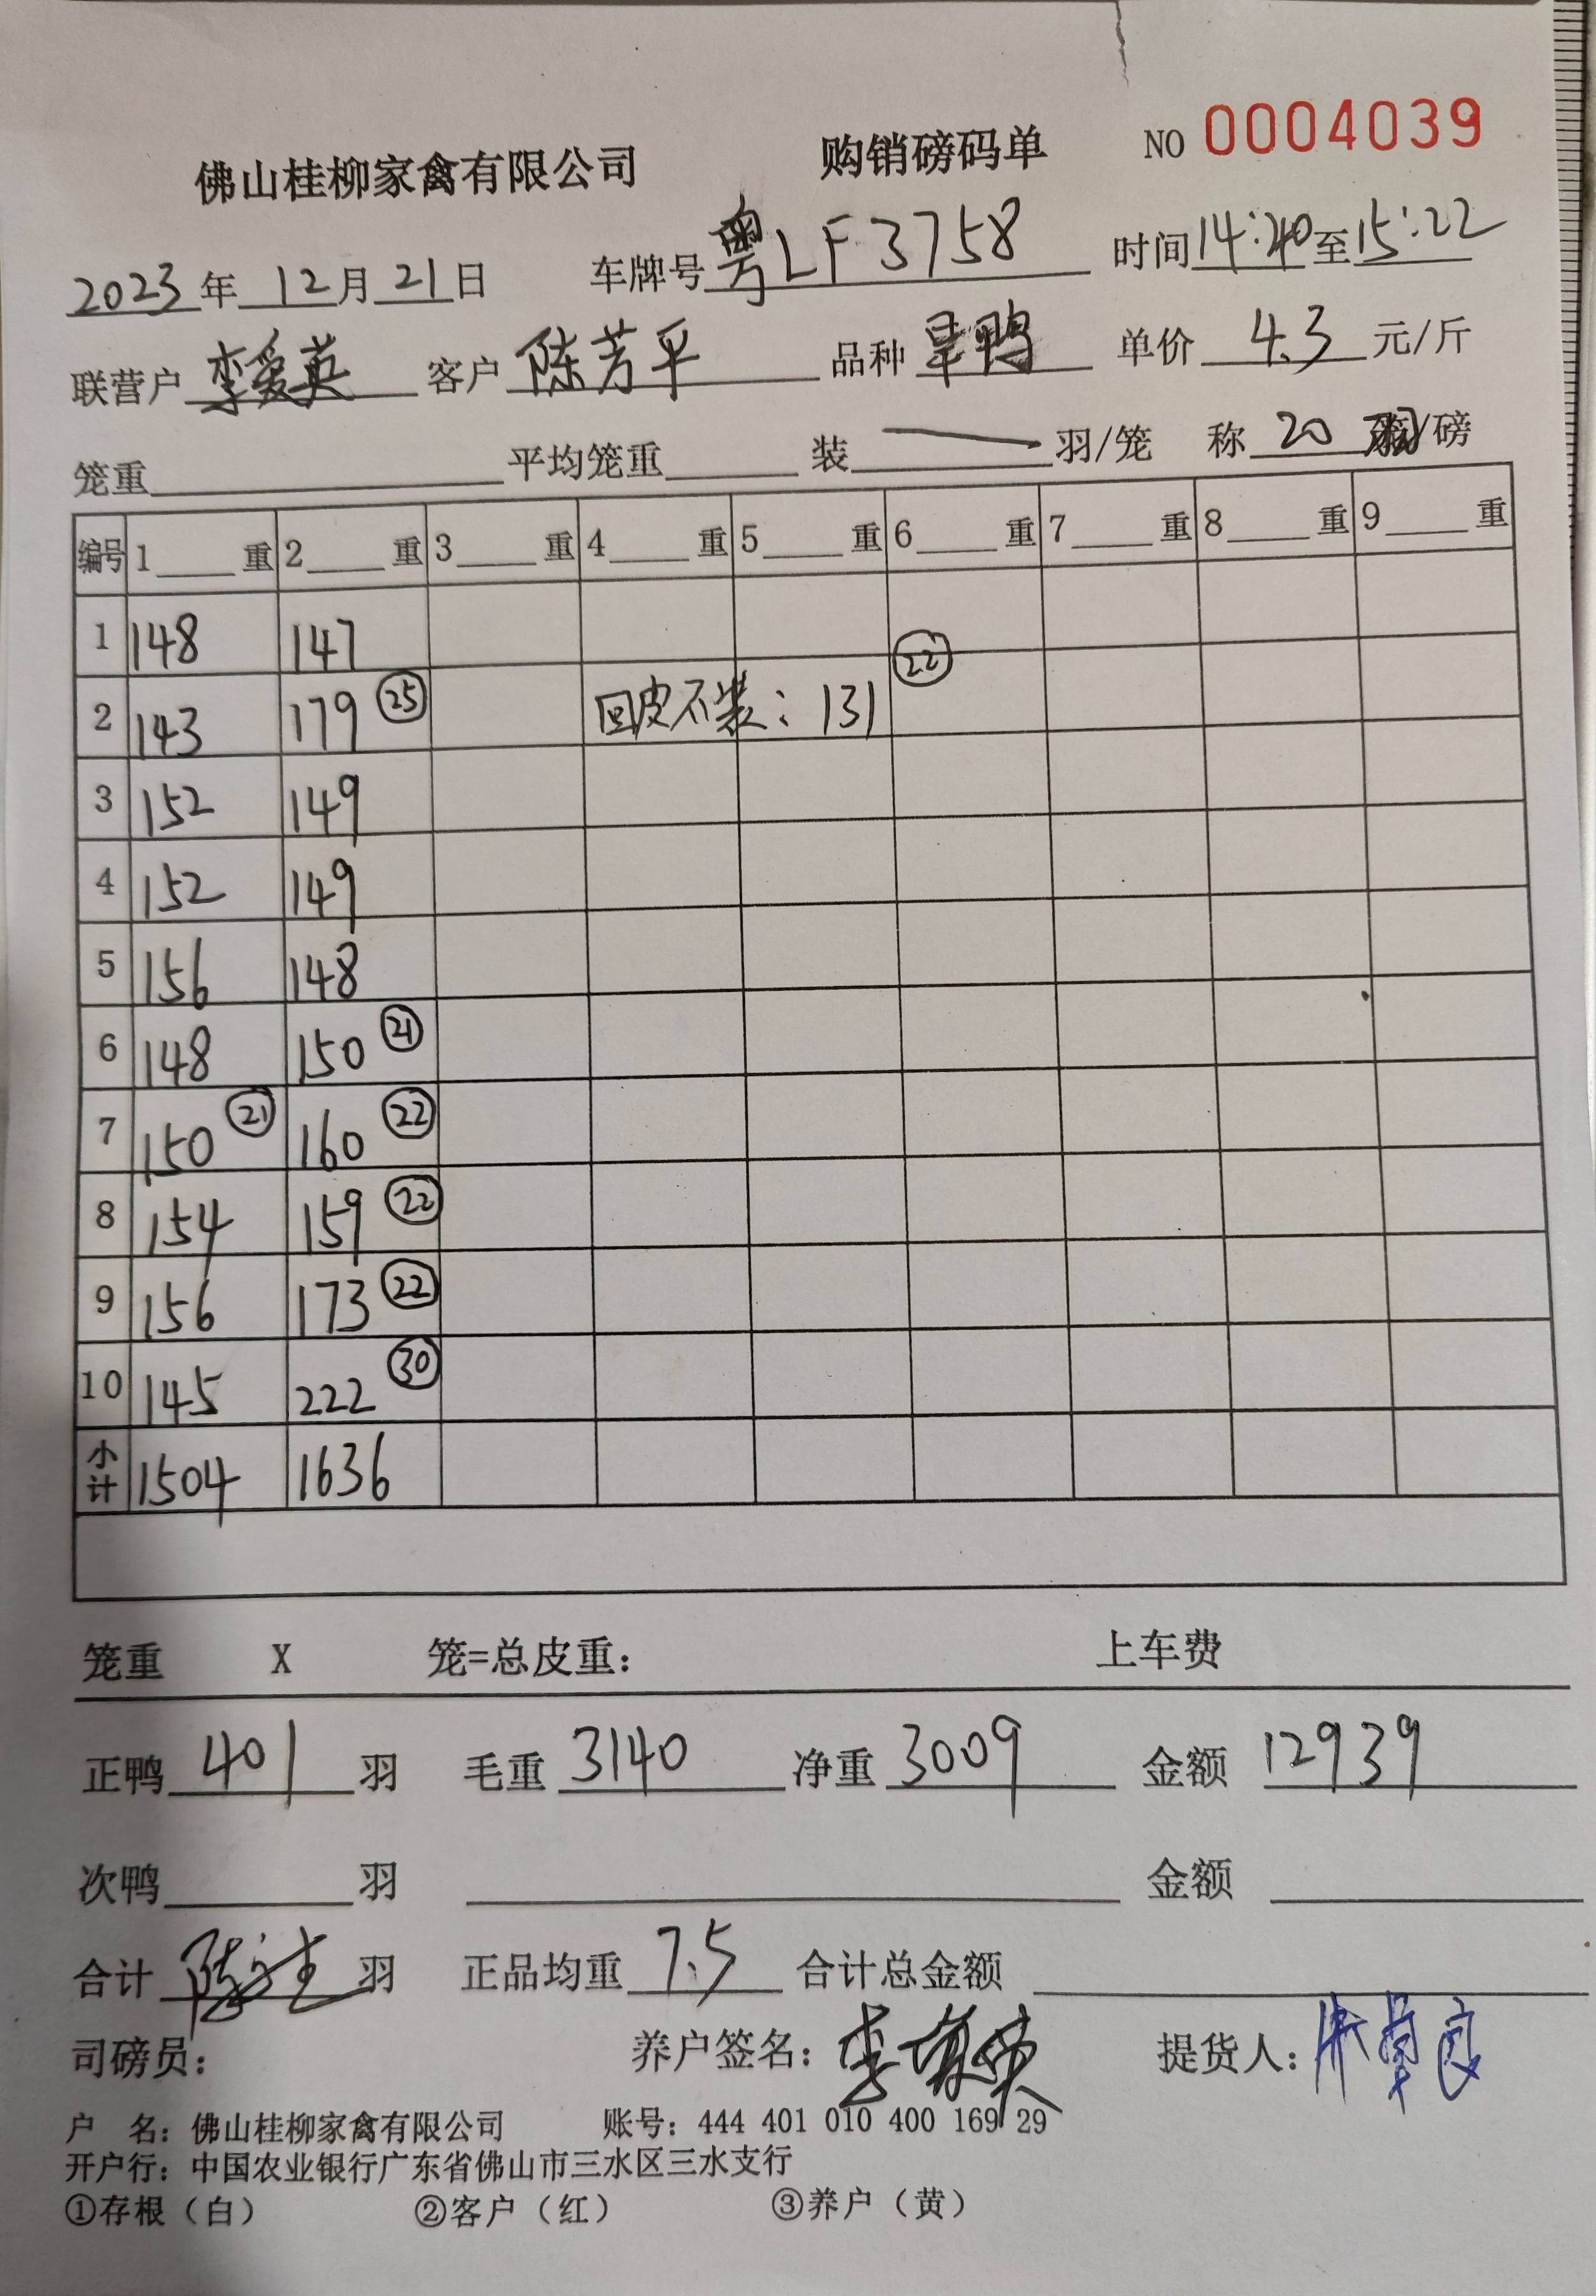 佛山桂柳家禽有限公司 购销磅码单 NO 0004039
2023年12月21日 车牌号粤LF3758 时间14:20至15:22
联营户 李爱英 客户 陈芳平 品种 旱鸭 单价 4.3 元/斤
笼重 平均笼重 装 — 羽/笼 称 20 /磅
编号 1 重 2 重 3 重 4 重 5 重 6 重 7 重 8 重 9 重
1 148 147
2 143 179 ㉕ 回皮不装:131 ㉒
3 152 149
4 152 149
5 156 148
6 148 150 ㉑
7 150 ㉑ 160 ㉒
8 154 159 ㉒
9 156 173 ㉒
10 145 222 ㉚
小计 1504 1636
笼重 X 笼=总皮重: 上车费
正鸭 401 羽 毛重 3140 净重 3009 金额 12939
次鸭 羽 金额
合计 羽 正品均重 7.5 合计总金额
司磅员: 养户签名: 提货人:
户 名:佛山桂柳家禽有限公司 账号:444 401 010 400 169 29
开户行:中国农业银行广东省佛山市三水区三水支行
①存根(白) ②客户(红) ③养户(黄)